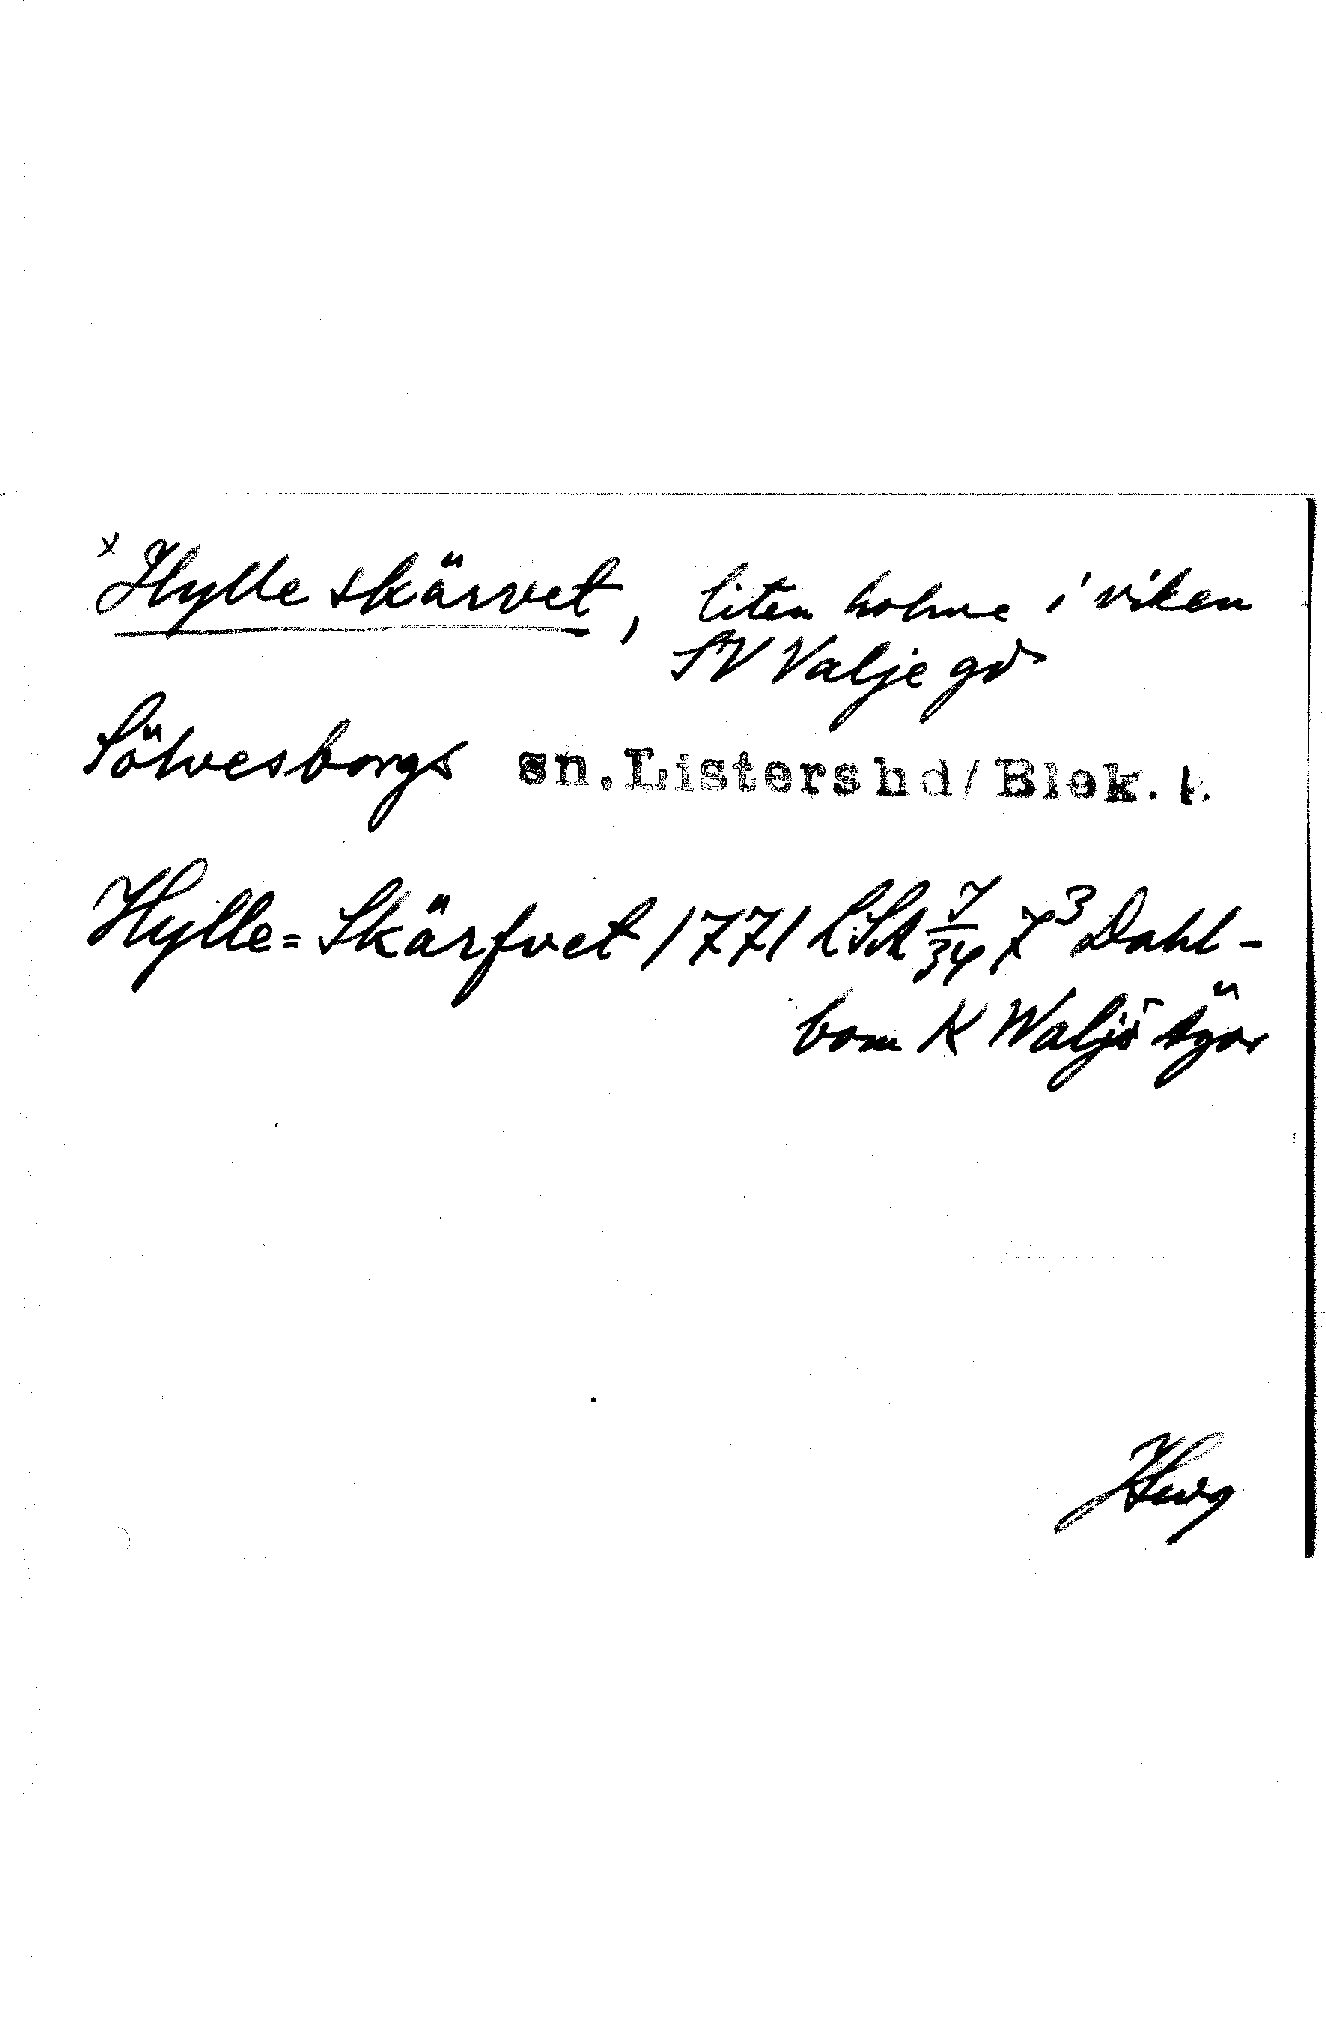 x Hylleskärvet, liten holme i viken
SV Valje gd
Sölvesborgs sn. Listers hd/Blek. l.
Hylle=Skärfvet 1771 LSA 7/34 7³ Dahl-
bom K Waljö ägor